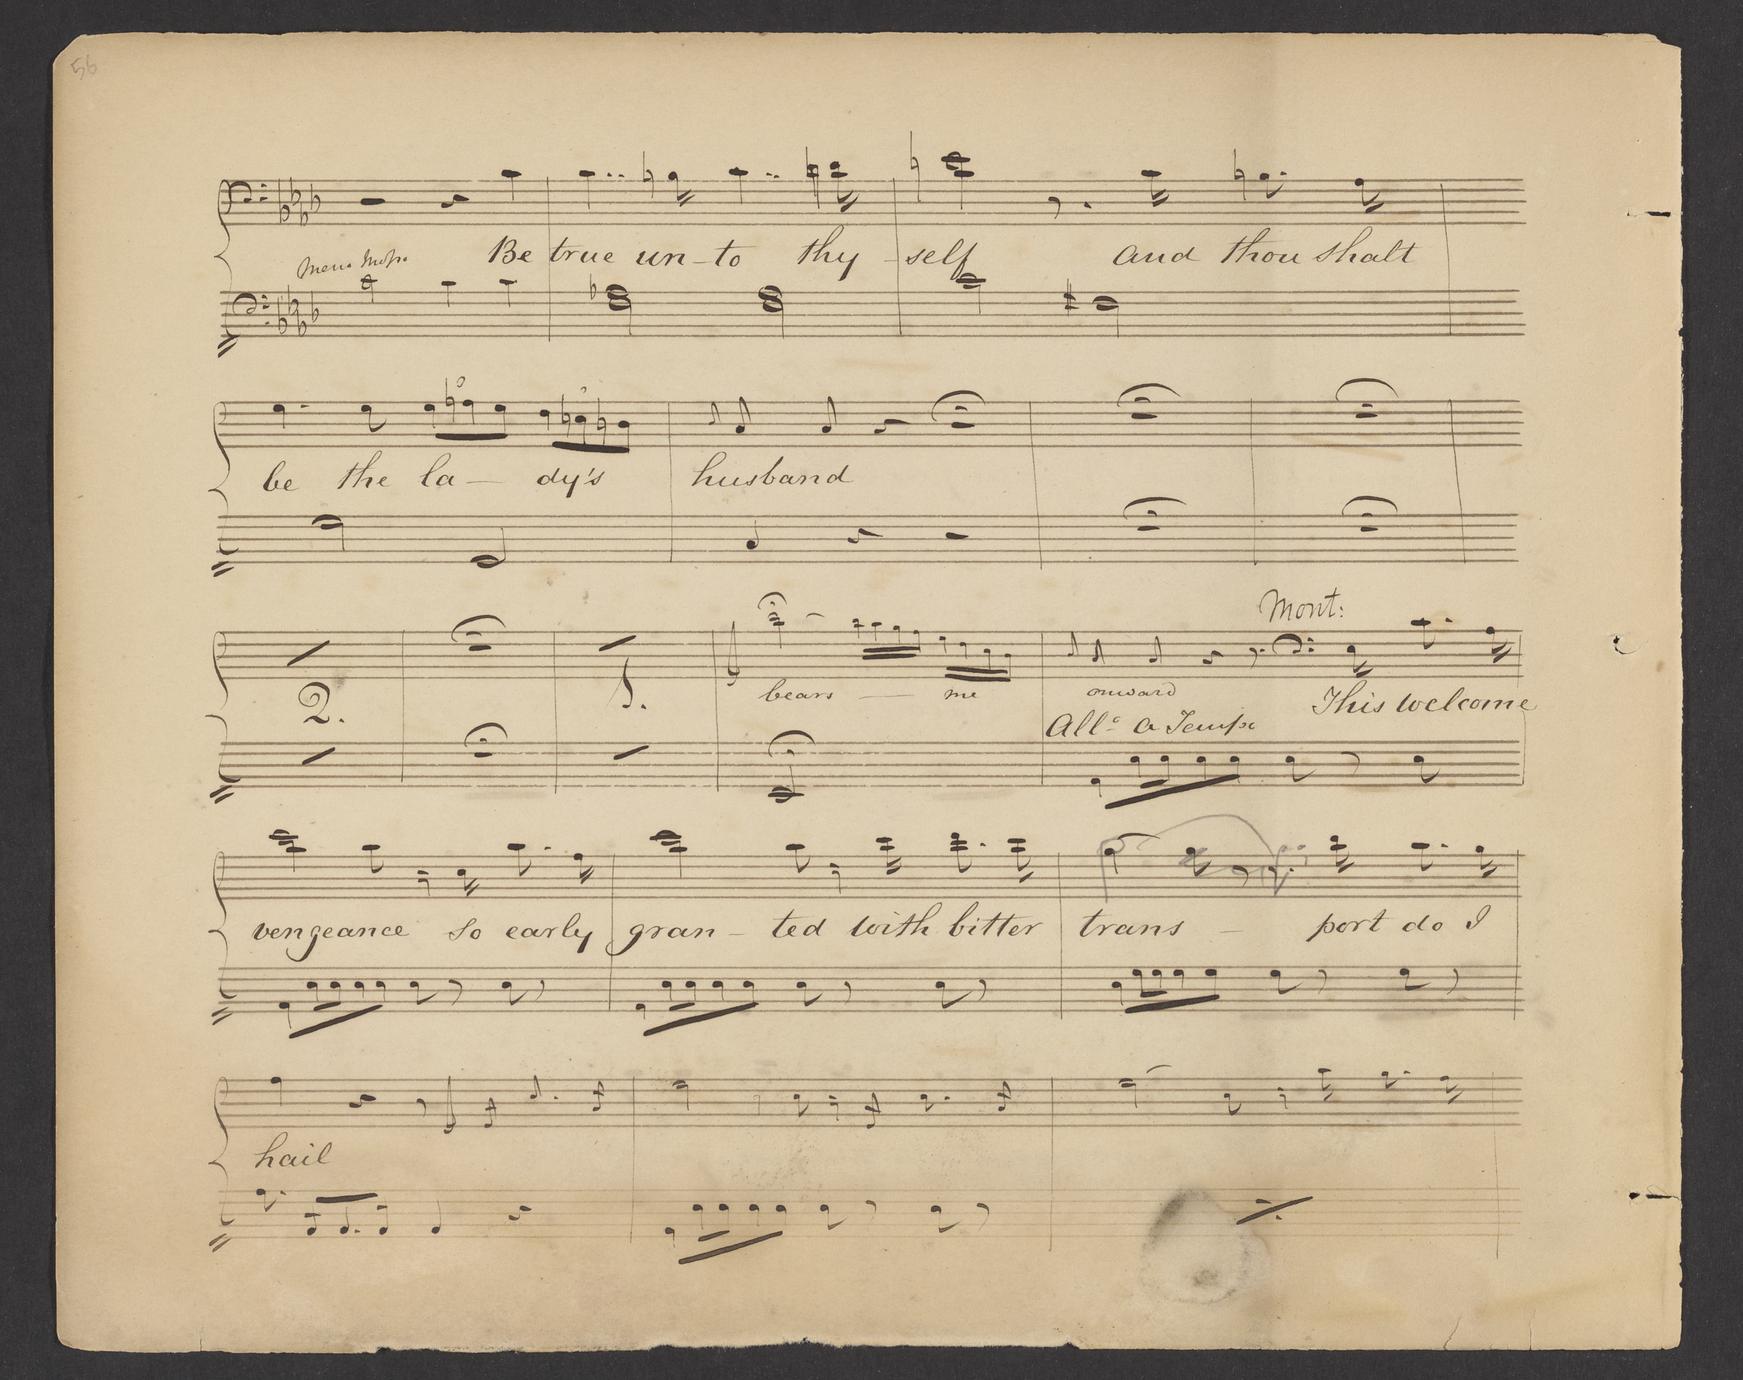 56
Be true un-to thy-self and thou shalt
Meno Mosso
be the la- dy's husband
Mont:
2. 5.
bears — me onward This welcome
All.º a Tempo
vengeance so early gran-ted with bitter trans - port do I
hail